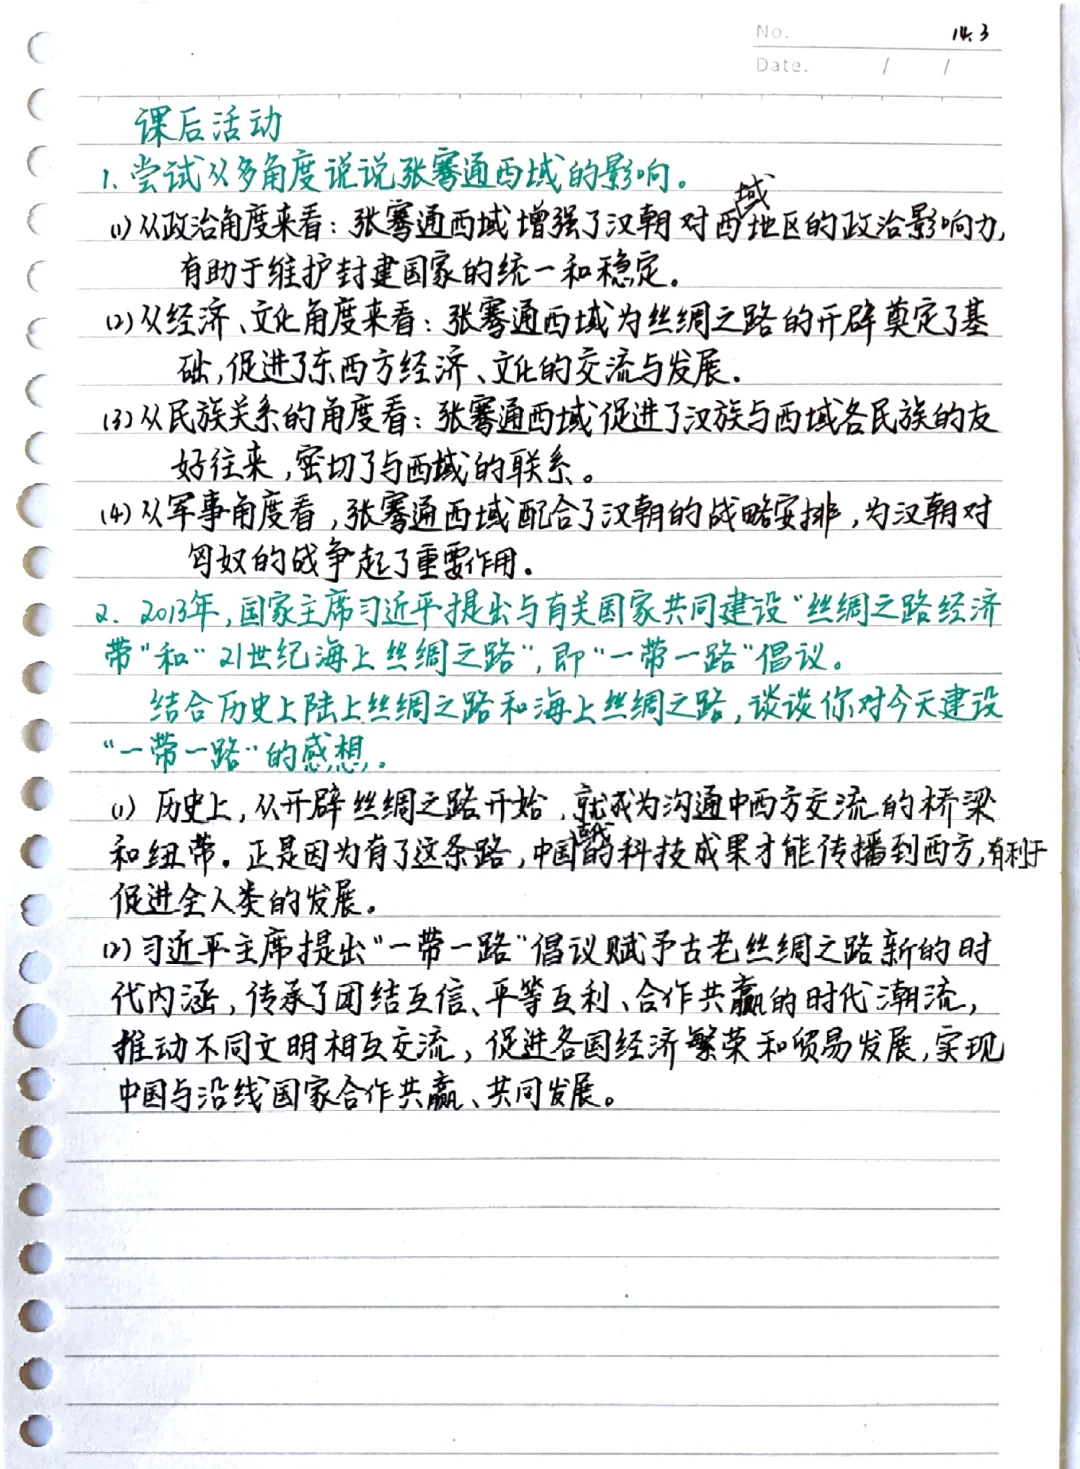 No. 14.3
Date. / /
课后活动
1. 尝试从多角度说说张骞通西域的影响。
(1)从政治角度来看：张骞通西域增强了汉朝对西域地区的政治影响力，
有助于维护封建国家的统一和稳定。
(2)从经济、文化角度来看：张骞通西域为丝绸之路的开辟奠定了基
础，促进了东西方经济、文化的交流与发展。
(3)从民族关系的角度看：张骞通西域促进了汉族与西域各民族的友
好往来，密切了与西域的联系。
(4)从军事角度看，张骞通西域配合了汉朝的战略安排，为汉朝对
匈奴的战争起了重要作用。
2. 2013年，国家主席习近平提出与有关国家共同建设"丝绸之路经济
带"和"21世纪海上丝绸之路"，即"一带一路"倡议。
结合历史上陆上丝绸之路和海上丝绸之路，谈谈你对今天建设
"一带一路"的感想。
(1) 历史上，从开辟丝绸之路开始，就成为沟通中西方交流的桥梁
和纽带。正是因为有了这条路，中国的科技成果才能传播到西方，有利于
促进全人类的发展。
(2)习近平主席提出"一带一路"倡议赋予古老丝绸之路新的时
代内涵，传承了团结互信、平等互利、合作共赢的时代潮流，
推动不同文明相互交流，促进各国经济繁荣和贸易发展，实现
中国与沿线国家合作共赢、共同发展。